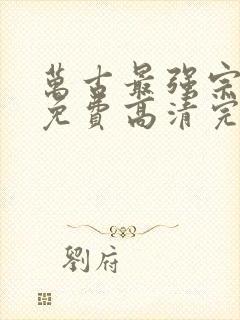 萬古最强宗
免費高清完
劉府